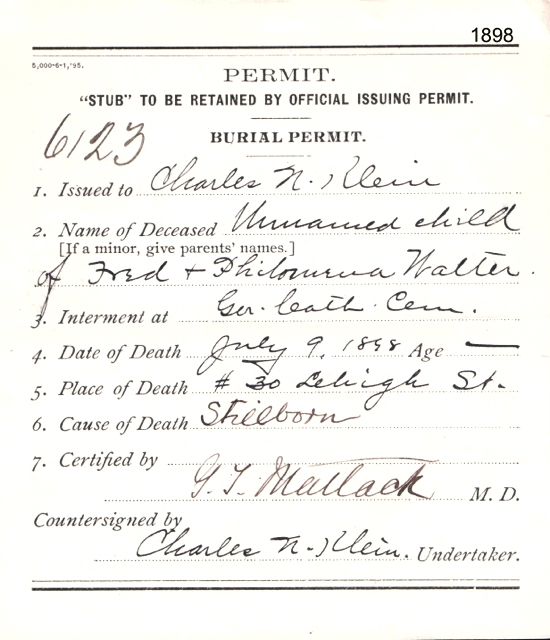 1898
5,000-6-1,'95.
PERMIT.
"STUB" TO BE RETAINED BY OFFICIAL ISSUING PERMIT.
6123
BURIAL PERMIT.
1. Issued to Charles N. Klein
2. Name of Deceased Unnamed child
[If a minor, give parents' names.]
of Fred + Philomena Walter.
3. Interment at Ger. Cath. Cem.
4. Date of Death July 9, 1898 Age —
5. Place of Death # 30 Lehigh St.
6. Cause of Death Stillborn
7. Certified by
G. T. Matlack M. D.
Countersigned by
Charles N. Klein. Undertaker.